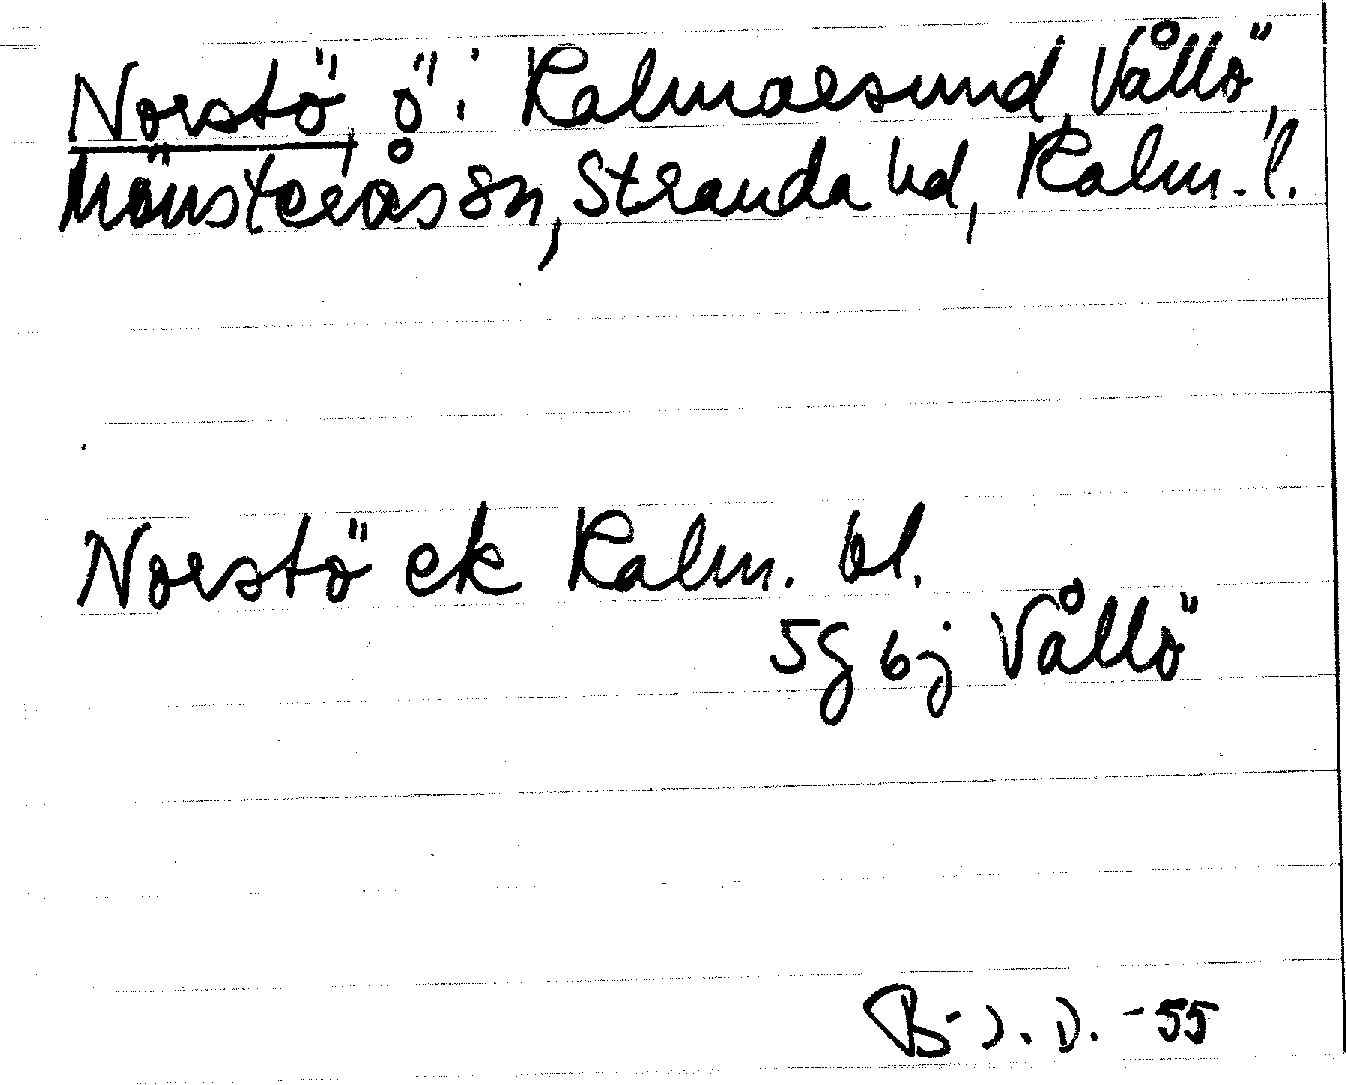 Norstö, ö i Kalmarsund, Vållö,
Mönsterås sn, Stranda hd, Kalm. l.
Norstö ek Kalm. bl.
5g 6j Vållö
B-J. D. -55